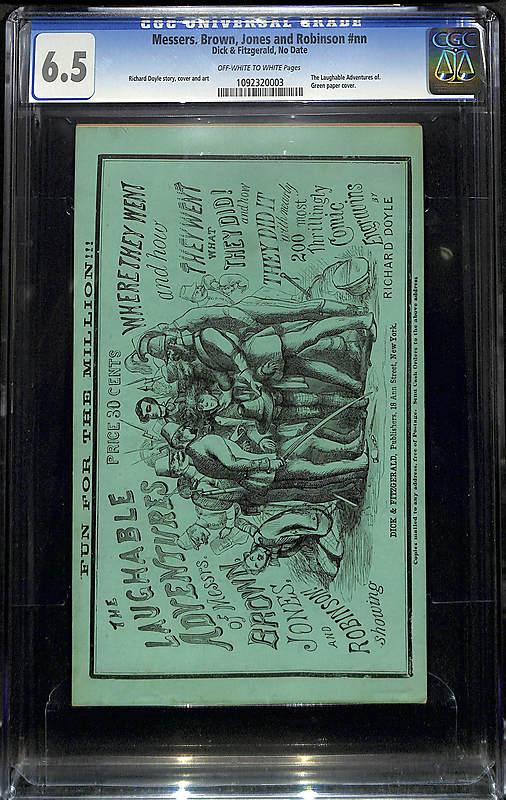 CGC UNIVERSAL GRADE
6.5
Messers. Brown, Jones and Robinson #nn
Dick & Fitzgerald, No Date
OFF-WHITE TO WHITE Pages
Richard Doyle story, cover and art
1092320003
The Laughable Adventures of.
Green paper cover.
CGC
FUN FOR THE MILLION!!!
PRICE 30 CENTS
THE
LAUGHABLE
ADVENTURES
of Mess.rs
BROWN,
JONES,
AND
ROBINSON,
showing
WHERE THEY WENT
and how
THEY WENT
WHAT
THEY DID!
and how
THEY DID IT
with nearly
200 most
Thrillingly
Comic
Engravins
BY
RICHARD DOYLE
DICK & FITZGERALD, Publishers, 18 Ann Street, New York.
Copies mailed to any address, free of Postage. Send Cash Orders to the above address